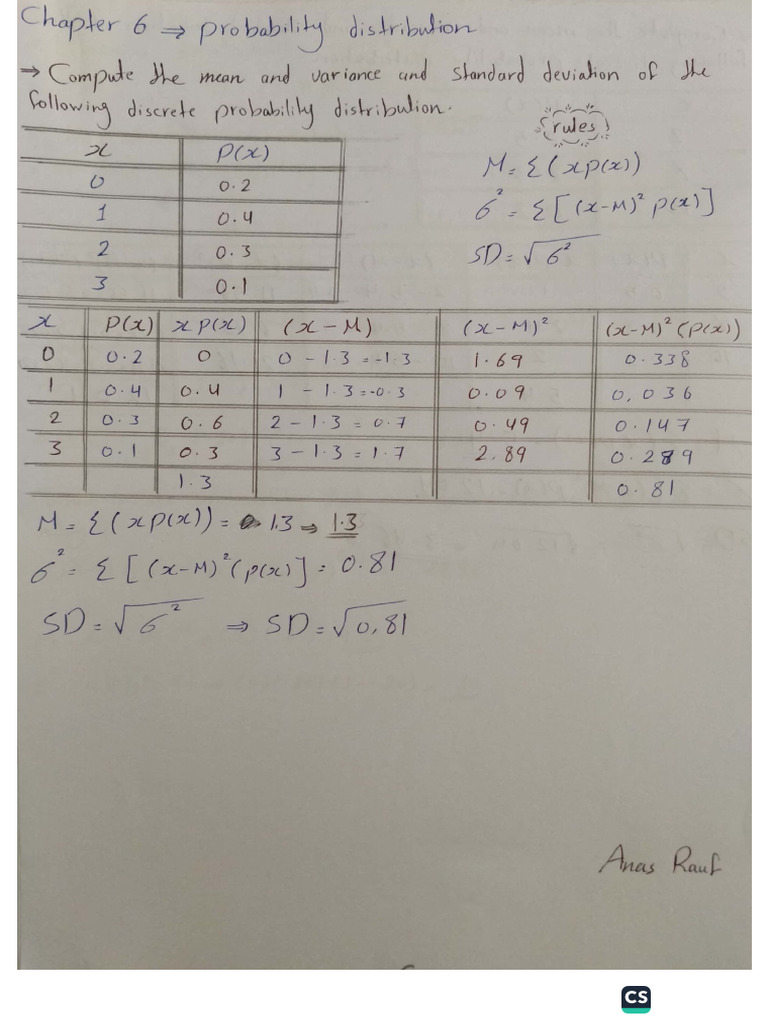 Chapter 6 ⇒ probability distribution
→ Compute the mean and variance and standard deviation of the
following discrete probability distribution.
rules
x P(x)
0 0.2
1 0.4
2 0.3
3 0.1
M = Σ(xp(x))
σ² = Σ[(x-M)² p(x)]
SD = √σ²
x P(x) xp(x) (x-M) (x-M)² (x-M)²(p(x))
0 0.2 0 0 - 1.3 = -1.3 1.69 0.338
1 0.4 0.4 1 - 1.3 = -0.3 0.09 0,036
2 0.3 0.6 2 - 1.3 = 0.7 0.49 0.147
3 0.1 0.3 3 - 1.3 = 1.7 2.89 0.289
1.3 0.81
M = Σ(xp(x)) = 1.3 ⇒ 1.3
σ² = Σ[(x-M)²(p(x)] = 0.81
SD = √σ² ⇒ SD = √0,81
Anas Rauf
CS